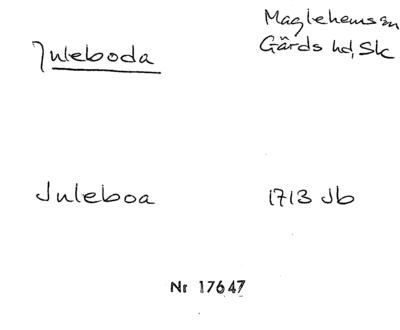 Maglehems sn
Juleboda Gärds hd, Sk
Juleboa 1713 Jb
Nr 17647